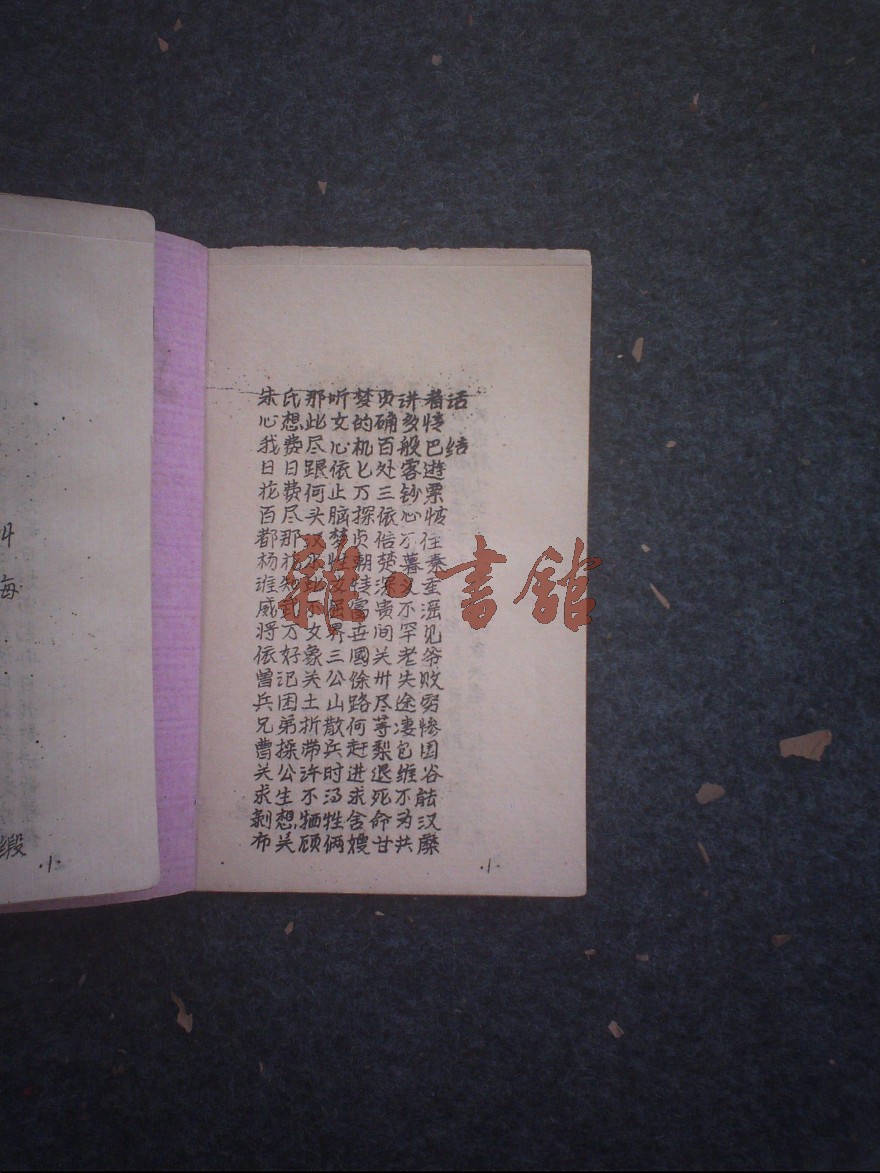 叫
海
缎
·1·
朱氏那听梦贞讲着话
心想此文的确多情
我费尽心机百般巴结
日日跟依匕处客遊
花费何止万三钞票
百尽头脑探依心情
都那汉梦贞信不往
杨花水性朝楚暮秦
谁知比女钱深义重
威武不屈富贵不滛
将万女界世间罕见
依好象三國关老爷
曾汜关公徐卅失败
兵困土山路尽途穷
兄弟折散何等凄惨
曹操带兵赶梨包国
关公许时进退维谷
求生不汤求死不能
剥想牺牲舍命为汉
布关顾俩嫂甘共
·1·
雜·書舘